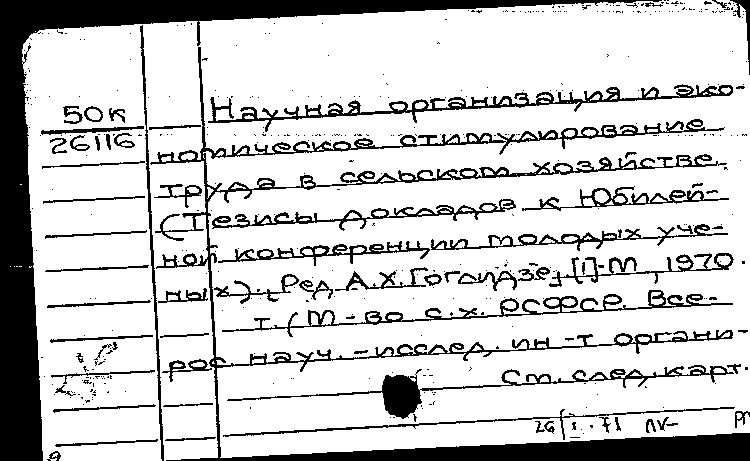 50к
26116
Научная организация и эко-
номическое стимулирование
труда в сельском хозяйстве.
(Тезисы докладов к Юбилей-
ной конференции молодых уче-
ных). Ред. А.Х. Гоглидзе, [1]. М., 1970.
т. (М-во с.х. РСФСР. Все-
рос. науч.-исслед. ин-т органи-
См. след. карт.
26/I.71 пк